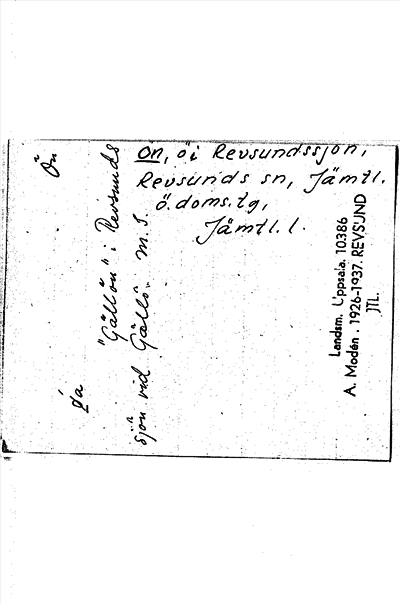 Ön, ö i Revsundssjön,
Revsunds sn, Jämtl.
ö. doms. tg,
Jämtl. l.
Ön
"Gällön" i Revsunds
sjön vid Gällö m. s.
Landsm. Uppsala. 10386
A. Modén. 1926-1937. REVSUND
JTL.